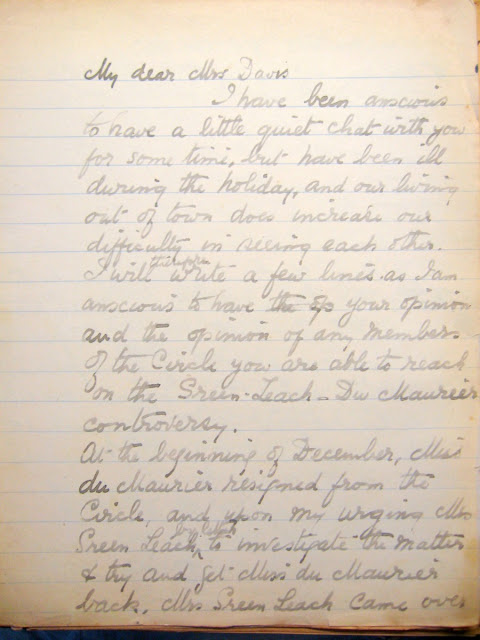 My dear Mrs Davis
I have been anscious
to have a little quiet chat with you
for some time, but have been ill
during the holiday, and our living
out of town does increase our
difficulty in seeing each other.
therefore
I will write a few lines as I am
anscious to have the op your opinion
and the opinion of any members
of the Circle you are able to reach
on the Green-Leach - Du Maurier
controversy.
At the beginning of December, Miss
du Maurier resigned from the
Circle, and upon my urging Mrs
Green Leach to investigate the matter
& try and get Miss du Maurier
back. Mrs Green Leach came over